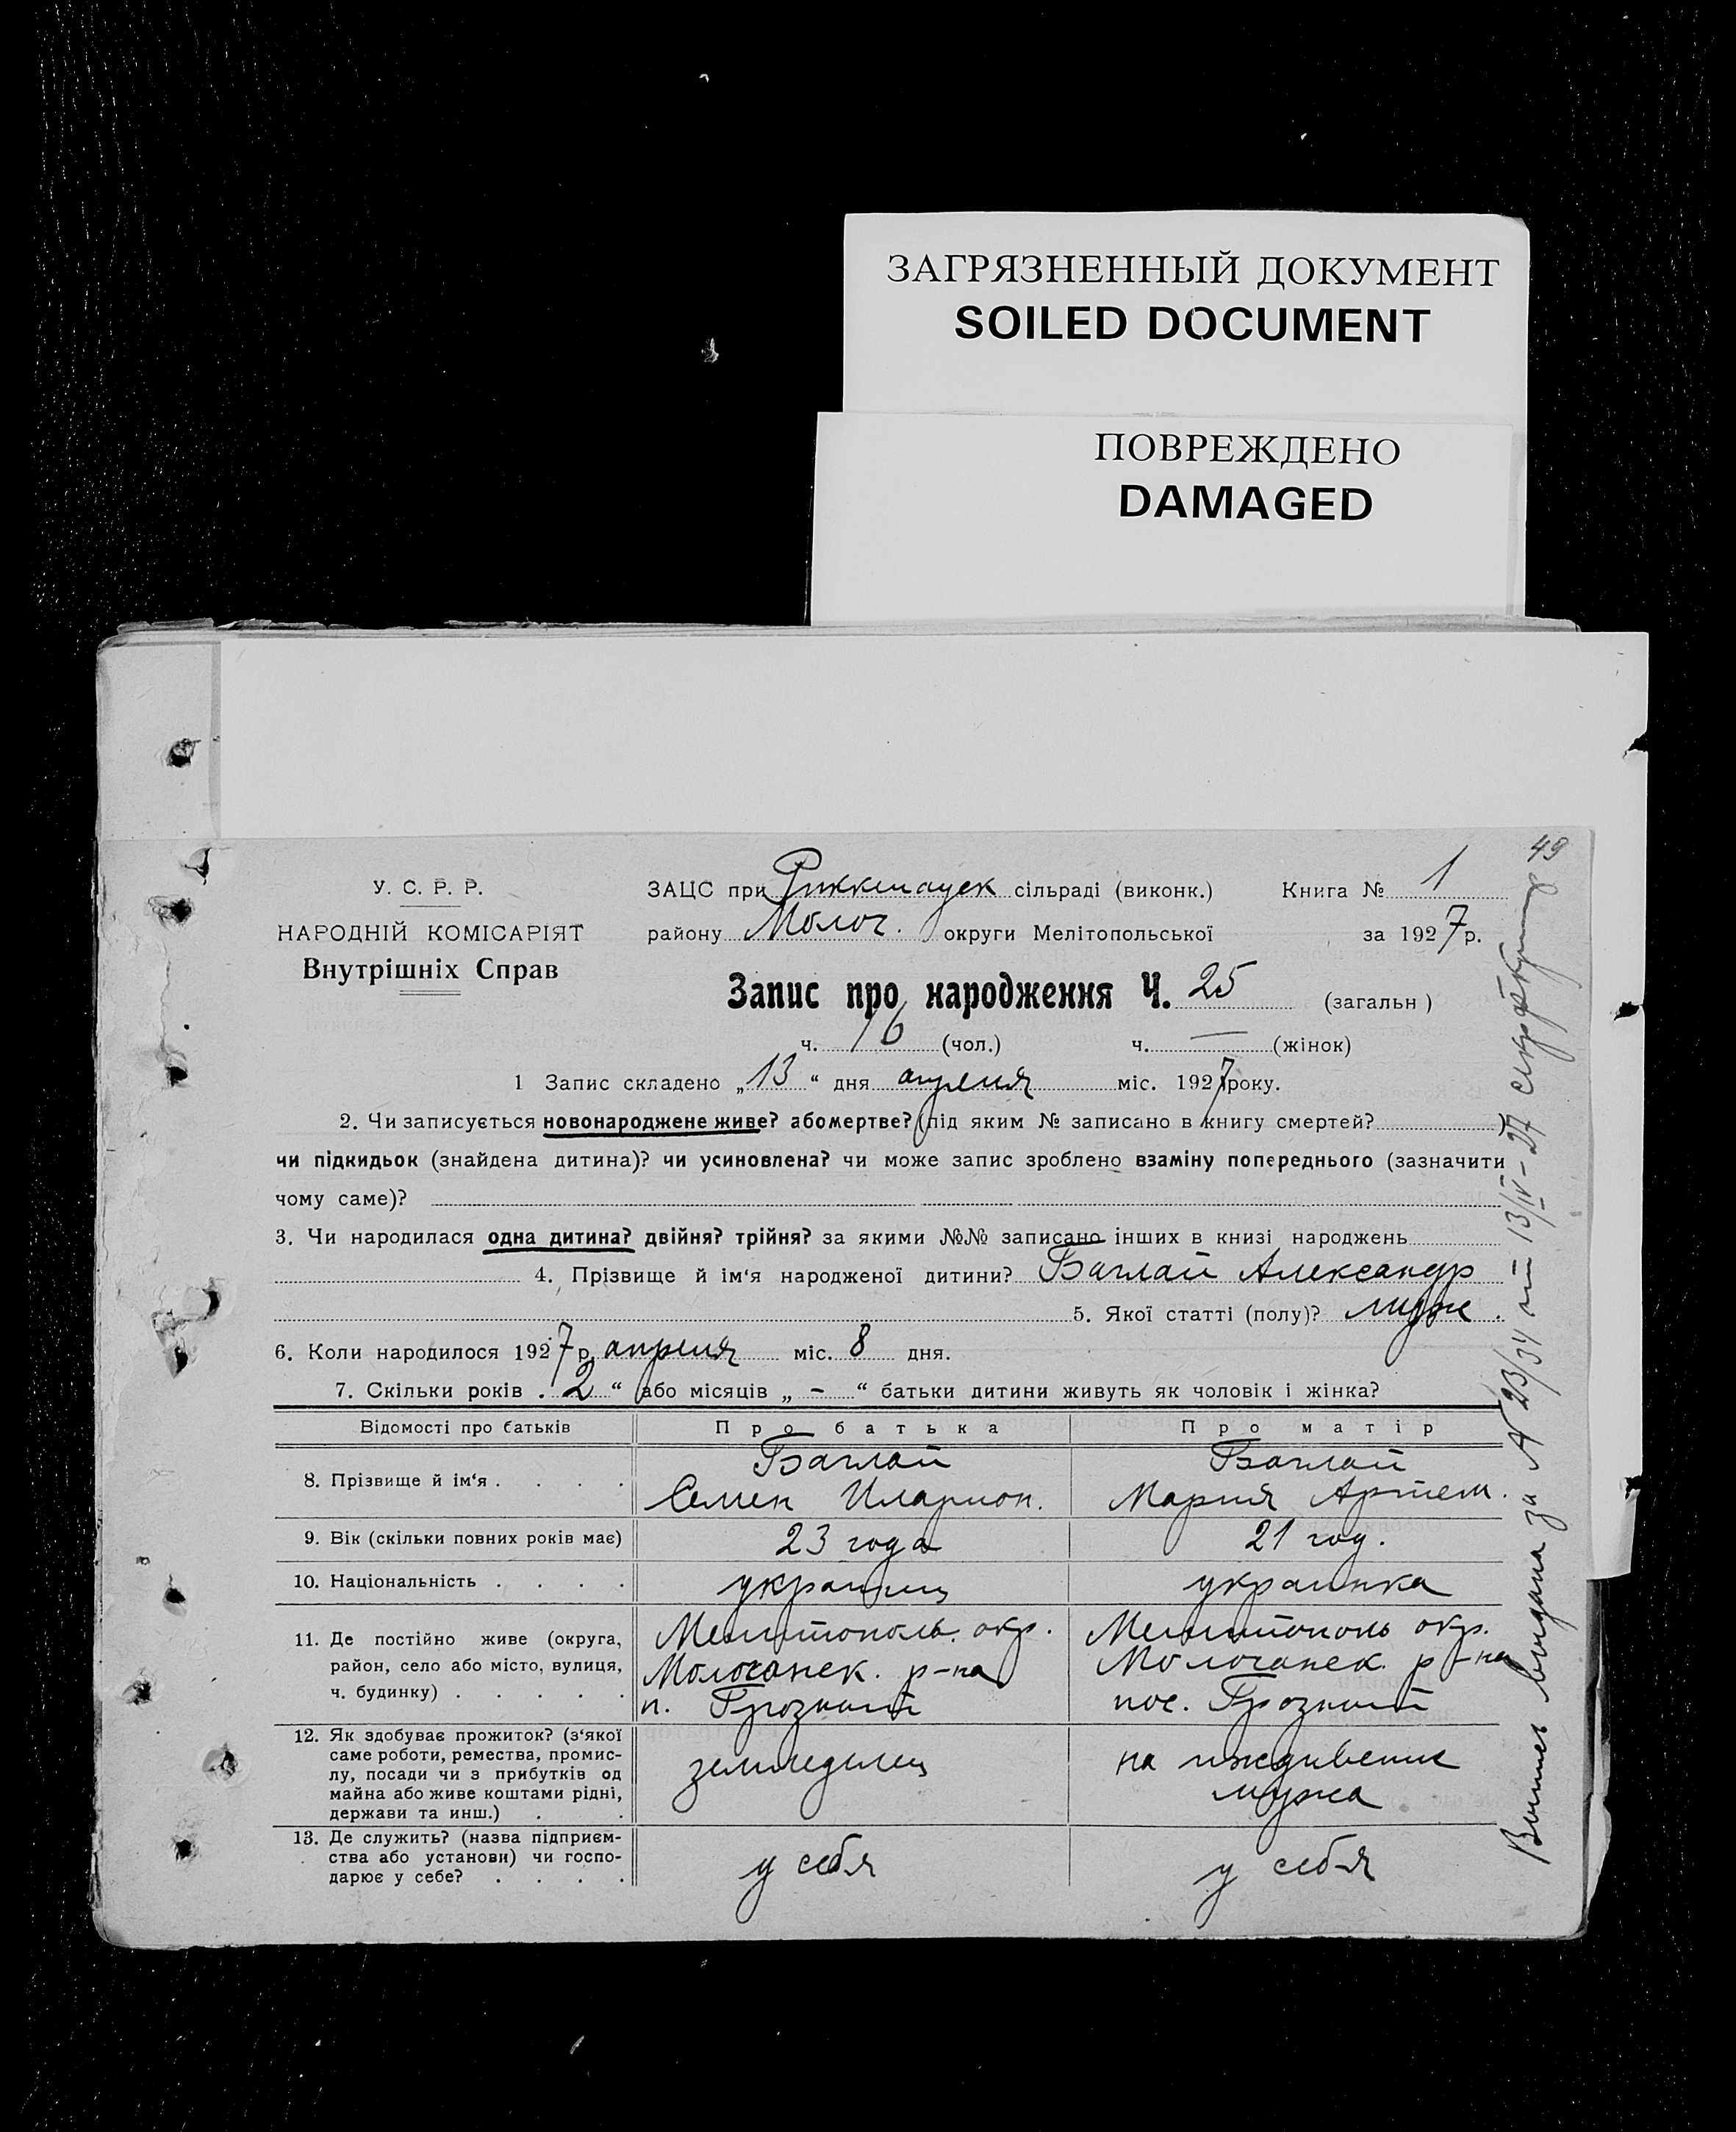 ЗАГРЯЗНЕННЫЙ ДОКУМЕНТ
SOILED DOCUMENT
ПОВРЕЖДЕНО
DAMAGED
49
У. С. Р. Р.
НАРОДНІЙ КОМІСАРІЯТ
Внутрішніх Справ
ЗАЦС при Риккенауск сільраді (виконк.) Книга № 1
району Молоч. округи Мелітопольської за 1927 р.
Запис про народження Ч. 25 (загальн )
ч. 16 (чол.) ч. — (жінок)
1 Запис складено „13“ дня апреля міс. 1927 року.
2. Чи записується новонароджене живе? або мертве? (під яким № записано в книгу смертей? )
чи підкидьок (знайдена дитина)? чи усиновлена? чи може запис зроблено взаміну попереднього (зазначити
чому саме)?
3. Чи народилася одна дитина? двійня? трійня? за якими №№ записано інших в книзі народжень
4. Прізвище й ім‘я народженої дитини? Баглай Александр
5. Якої статті (полу)? муж.
6. Коли народилося 1927 р. апреля міс. 8 дня.
7. Скільки років . 2 “ або місяців „ - “ батьки дитини живуть як чоловік і жінка?
Відомості про батьків Про батька Про матір
8. Прізвище й ім‘я . . . . Баглай Семен Иларион. Баглай Мария Артем.
9. Вік (скільки повних років має) 23 года 21 год.
10. Національність . . . . украинец украинка
11. Де постійно живе (округа, Мелитополь. окр. Мелитополь окр.
район, село або місто, вулиця, Молочанск. р-на Молочанск. р-на
ч. будинку) . . . . . п. Грозный пос. Грозный
12. Як здобуває прожиток? (з‘якої
саме роботи, ремества, промис-
лу, посади чи з прибутків од
майна або живе коштами рідні,
держави та инш.) . . земледелец на иждивении мужа
13. Де служить? (назва підприєм-
ства або установи) чи госпо-
дарює у себе? . . . . у себя у себя
Выпись выдана за № 23/34 от 13/IV-27 секретарь